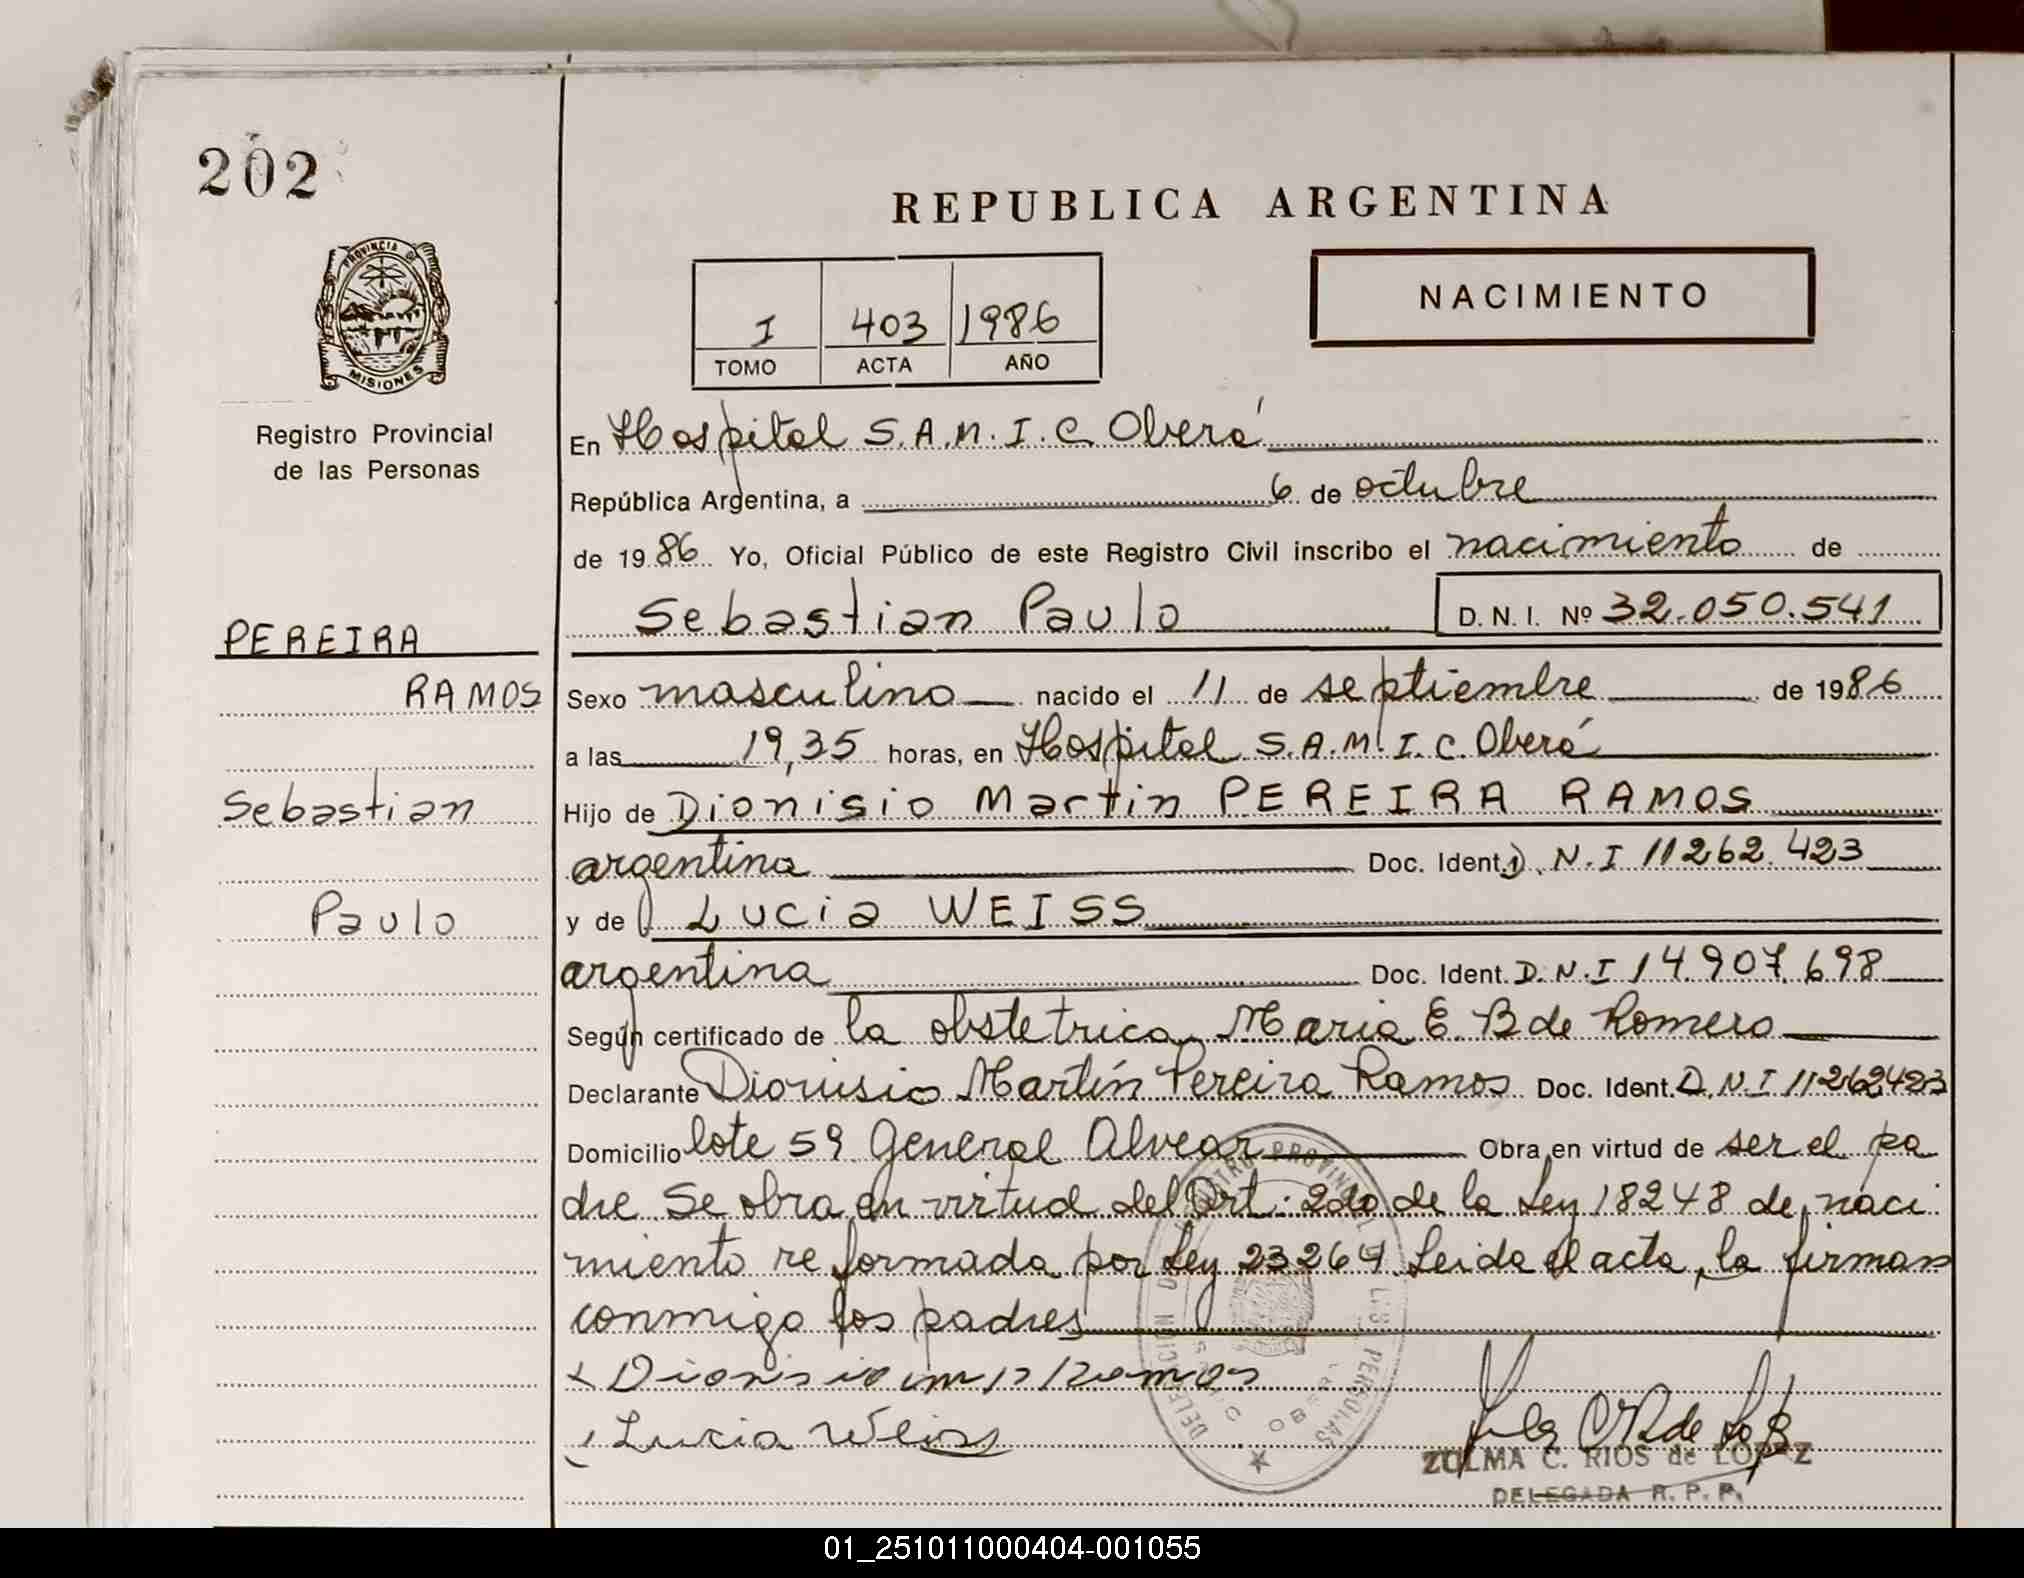 202
REPUBLICA ARGENTINA
NACIMIENTO
I 403 1986
TOMO ACTA AÑO
PROVINCIA DE
MISIONES
Registro Provincial
de las Personas
En Hospital S.A.M.I.C. Oberá
República Argentina, a 6 de octubre
de 1986 Yo, Oficial Público de este Registro Civil inscribo el nacimiento de
Sebastian Paulo D. N. I. Nº 32.050.541
PEREIRA
RAMOS
Sebastian
Paulo
Sexo masculino nacido el 11 de septiembre de 1986
a las 19,35 horas, en Hospital S.A.M.I.C. Oberá
Hijo de Dionisio Martin PEREIRA RAMOS
argentina Doc. Ident. D.N.I 11262.423
y de Lucia WEISS
argentina Doc. Ident. D.N.I 14.907.698
Según certificado de la obstetrica Maria E. B de Romero
Declarante Dionisio Martín Pereira Ramos Doc. Ident. D.N.I 11262423
Domicilio lote 59 General Alvear Obra en virtud de ser el pa
dre Se obra en virtud del Art: 2do de la Ley 18248 de naci
miento reformada por Ley 23264 Leida el acta, la firman
conmigo los padres
Dionisio m P Ramos
Lucia Weiss
ZULMA C. RIOS de LOPEZ
DELEGADA R. P. P.
01_251011000404-001055